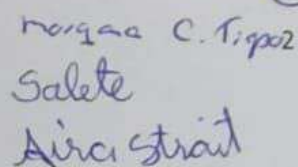 morgana C. Tigpoz
Salete
Aira Strait